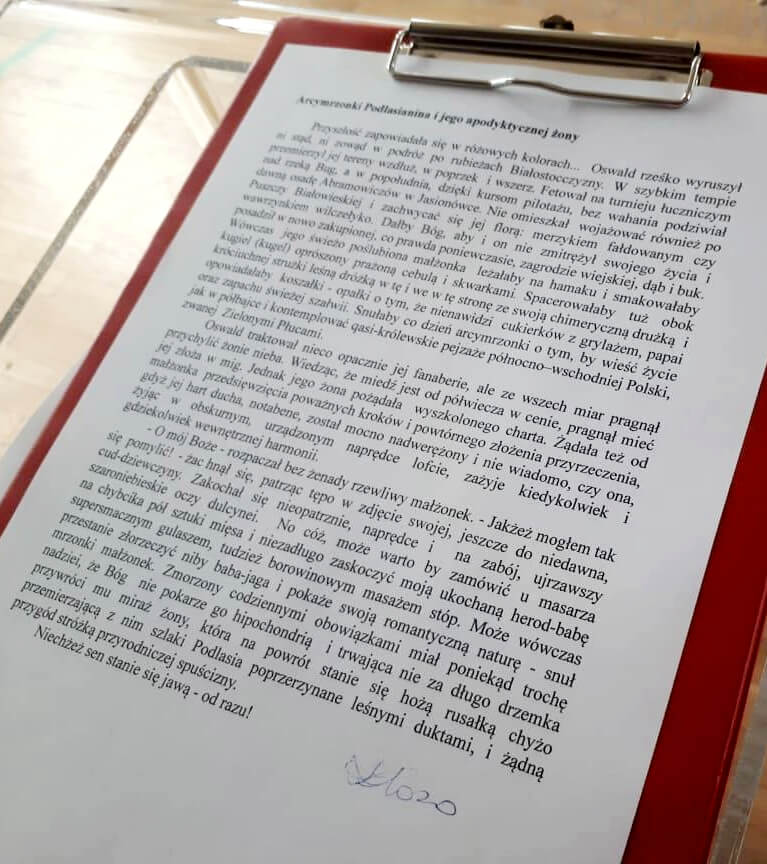 Arcymrzonki Podlasianina i jego apodyktycznej żony
Przyszłość zapowiadała się w różowych kolorach... Oswald rześko wyruszył
ni stąd, ni zowąd w podróż po rubieżach Białostocczyzny. W szybkim tempie
przemierzył jej tereny wzdłuż, w poprzek i wszerz. Fetował na turnieju łuczniczym
nad rzeką Bug, a w popołudnia, dzięki kursom pilotażu, bez wahania podziwiał
dawną osadę Abramowiczów w Jasionówce. Nie omieszkał wojażować również po
Puszczy Białowieskiej i zachwycać się jej florą: merzykiem fałdowanym czy
wawrzynkiem wilczełyko. Dałby Bóg, aby i on nie zmitrężył swojego życia i
posadził w nowo zakupionej, co prawda poniewczasie, zagrodzie wiejskiej, dąb i buk.
Wówczas jego świeżo poślubiona małżonka leżałaby na hamaku i smakowałaby
kugiel (kugel) oprószony prażoną cebulą i skwarkami. Spacerowałaby tuż obok
króciuchnej strużki leśną dróżką w tę i we w tę stronę ze swoją chimeryczną drużką i
opowiadałaby koszałki - opałki o tym, że nienawidzi cukierków z grylażem, papai
oraz zapachu świeżej szałwii. Snułaby co dzień arcymrzonki o tym, by wieść życie
jak w półbajce i kontemplować qasi-królewskie pejzaże północno–wschodniej Polski,
zwanej Zielonymi Płucami.
Oswald traktował nieco opacznie jej fanaberie, ale ze wszech miar pragnął
przychylić żonie nieba. Wiedząc, że miedź jest od półwiecza w cenie, pragnął mieć
jej złoża w mig. Jednak jego żona pożądała wyszkolonego charta. Żądała też od
małżonka przedsięwzięcia poważnych kroków i powtórnego złożenia przyrzeczenia,
gdyż jej hart ducha, notabene, został mocno nadwerężony i nie wiadomo, czy ona,
żyjąc w obskurnym, urządzonym naprędce lofcie, zażyje kiedykolwiek i
gdziekolwiek wewnętrznej harmonii.
- O mój Boże - rozpaczał bez żenady rzewliwy małżonek. - Jakżeż mogłem tak
się pomylić! - żac hnął się, patrząc tępo w zdjęcie swojej, jeszcze do niedawna,
cud-dziewczyny. Zakochał się nieopatrznie, naprędce i na zabój, ujrzawszy
szaroniebieskie oczy dulcynei. No cóż, może warto by zamówić u masarza
na chybcika pół sztuki mięsa i niezadługo zaskoczyć moją ukochaną herod-babę
supersmacznym gulaszem, tudzież borowinowym masażem stóp. Może wówczas
przestanie złorzeczyć niby baba-jaga i pokaże swoją romantyczną naturę - snuł
mrzonki małżonek. Zmorzony codziennymi obowiązkami miał poniekąd trochę
nadziei, że Bóg nie pokarze go hipochondrią i trwająca nie za długo drzemka
przywróci mu miraż żony, która na powrót stanie się hożą rusałką chyżo
przemierzającą z nim szlaki Podlasia poprzerzynane leśnymi duktami, i żądną
przygód stróżką przyrodniczej spuścizny.
Niechżeż sen stanie się jawą - od razu!